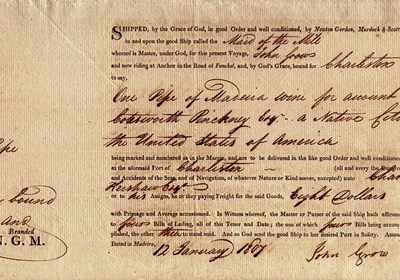 SHIPPED, by the Grace of God, in good Order and well conditioned, by Newton Gordon, Murdoch & Scott
in and upon the good Ship called the Maid of the Mill
whereof is Master, under God, for this present Voyage, John
and now riding at Anchor in the Road of Funchal, and, by God's Grace, bound for Charleston
to say,
One Pipe of Madeira wine for account
Cotesworth Pinckney Esqr. a Native
the United States of America
being marked and numbered as in the Margin, and are to be delivered in the like good Order and well conditioned
at the aforesaid Port of Charleston (all and every the
and Accidents of the Seas, and of Navigation, of whatever Nature or Kind soever, excepted) unto
Esqr.
or to his Assigns, he or they paying Freight for the said Goods, Eight Dollars
with Primage and Average accustomed. In Witness whereof, the Master or Purser of the said Ship hath
to four Bills of Lading, all of this Tenor and Date; the one of which four Bills being
plished, the other three to stand void. And so God send the good Ship to her desired Port in Safety.
Dated in Madeira, 12 January 1807
John
Pipe
bound
and
Branded
N. G. M.